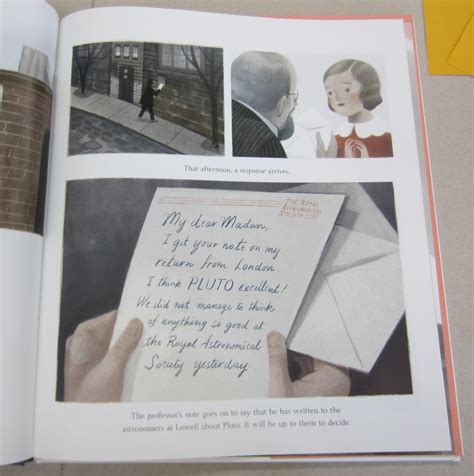 That afternoon, a response arrives.
THE ROYAL
ASTRONOMICAL
SOCIETY
My dear Madam,
I got your note on my
return from London.
I think PLUTO excellent!
We did not manage to think
of anything so good at
the Royal Astronomical
Society yesterday.
The professor's note goes on to say that he has written to the
astronomers at Lowell about Pluto. It will be up to them to decide.